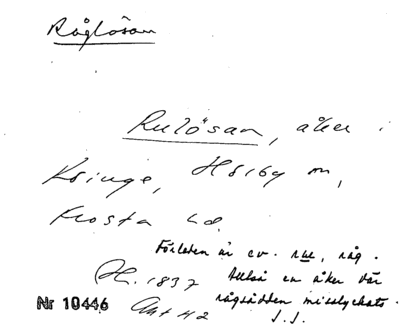 Råglösan
Rulösan, åker i
Kringe, Hörby sn,
Frosta hd.
Förleden är ev. rug, råg.
Alltså en åker där
1837
rågsådden misslyckats.
Nr 10446